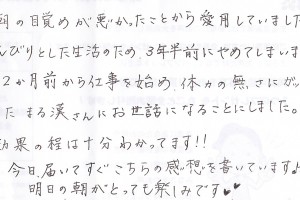 朝の目覚めが悪かったことから愛用していました
んびりとした生活のため、3年半前にやめてしまいま
2か月前から仕事を始め、体力の無さにガッ
た まる漢さんにお世話になることにしました。
効果の程は十分わかってます!!
今日、届いてすぐこちらの感想を書いています♪
明日の朝がとっても楽しみです♥♥